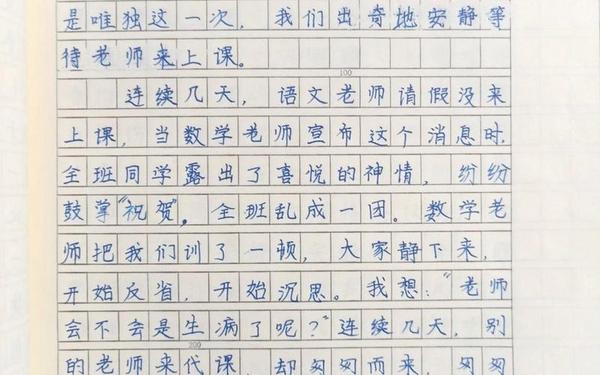 是唯独这一次，我们出奇地安静等
待老师来上课。
100
连续几天，语文老师请假没来
上课，当数学老师宣布这个消息时，
全班同学露出了喜悦的神情，纷纷
鼓掌“祝贺”。全班乱成一团。数学老
师把我们训了一顿，大家静下来，
开始反省，开始沉思。我想：“老师
会不会是生病了呢？”连续几天，别
200
的老师来代课，却匆匆而来，匆匆